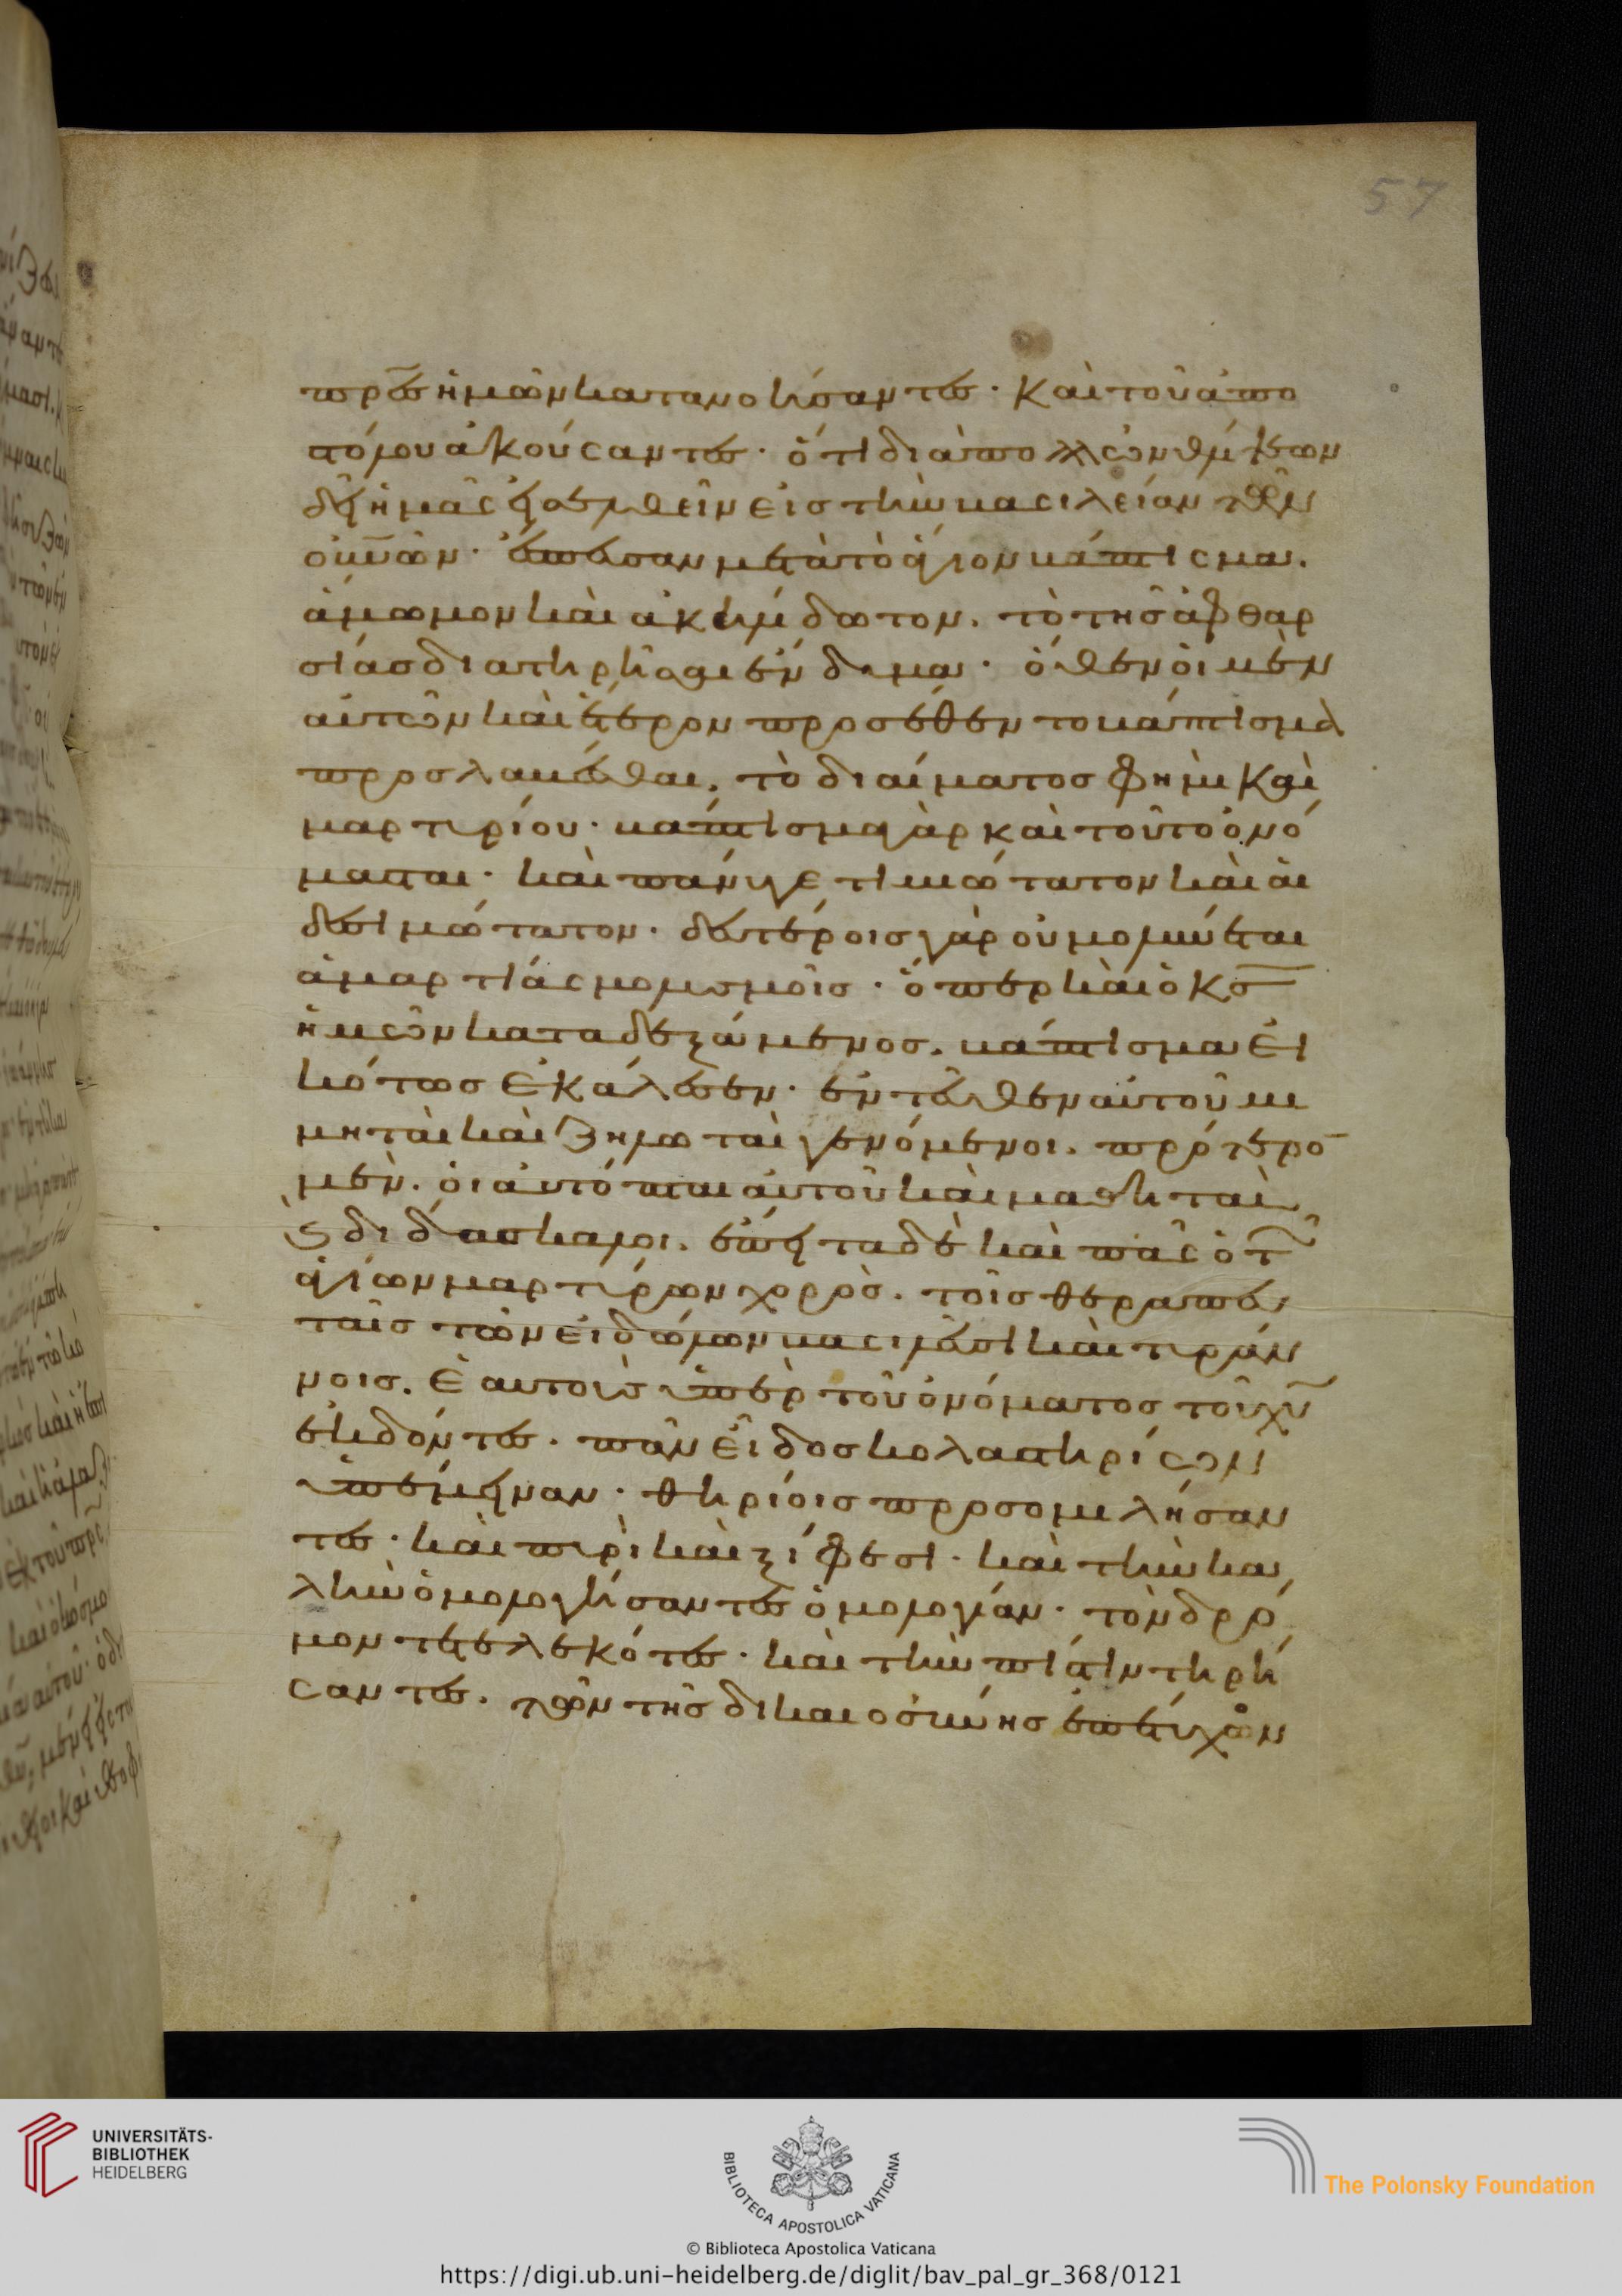 πρ̅ς ἡμῶν κατανοήσαντες· καὶ τοῦ ἀπο
στόλου ἀκούσαντες· ὅτι διὰ πολλῶν θλίψεων
δεῖ ἡμᾶς εἰσελθεῖν εἰς τὴν βασιλείαν τῶν
οὐ̅νῶν· ἔσπευσαν μετὰ τὸ ἅγιον βάπτισμα.
ἄμωμον καὶ ἀκηλίδωτον. τὸ τῆς ἀφθαρ
σίας διατηρῆσαι ἔνδυμα· ὅθεν οἱ μὲν
αὐτῶν καὶ ἕτερον προσέθεντο βάπτισμα
προσλαβέσθαι. τὸ δι αἵματος φημὶ καὶ
μαρτυρίου· βάπτισμα γὰρ καὶ τοῦτο ὀνό
μασται· καὶ πάνυ γε τιμιώτατον καὶ αἰ
δεσιμώτατον· δευτέροις γὰρ οὐ μολύνεται
ἁμαρτίας μολυσμοῖς· ὅπερ καὶ ὁ κ̅ς̅
ἡμῶν καταδεξάμενος. βάπτισμα εἰ
κότως ἐκάλεσεν· ἐντεῦθεν αὐτοῦ μι
μηταὶ καὶ ζηλωταὶ γενόμενοι. πρότερο̅
μὲν. οἱ αὐτόπται αὐτοῦ καὶ μαθηταὶ
ϗ διδάσκαλοι. ἔπειτα δὲ καὶ πᾶς ὁ τῶν
ἁγίων μαρτύρων χορὸς. τοῖς θεραπευ
ταῖς τῶν εἰδώλων βασιλεῦσι καὶ τυράν
νοις. ἑαυτοὺς ὑπὲρ τοῦ ὀνόματος τοῦ χ̅υ̅
ἐκδόντες. πᾶν εἶδος κολαστηρίων
ὑπέμειναν· θηρίοις προσομιλήσαν
τες· καὶ πυρὶ καὶ ξίφεσι· καὶ τὴν κα
λὴν ὁμολογήσαντες ὁμολογίαν· τὸν δρό
μον τετελεκότες· καὶ τὴν πίστιν τηρή
σαντες. τῶν τῆς δικαιοσύνης ἐπέτυχον